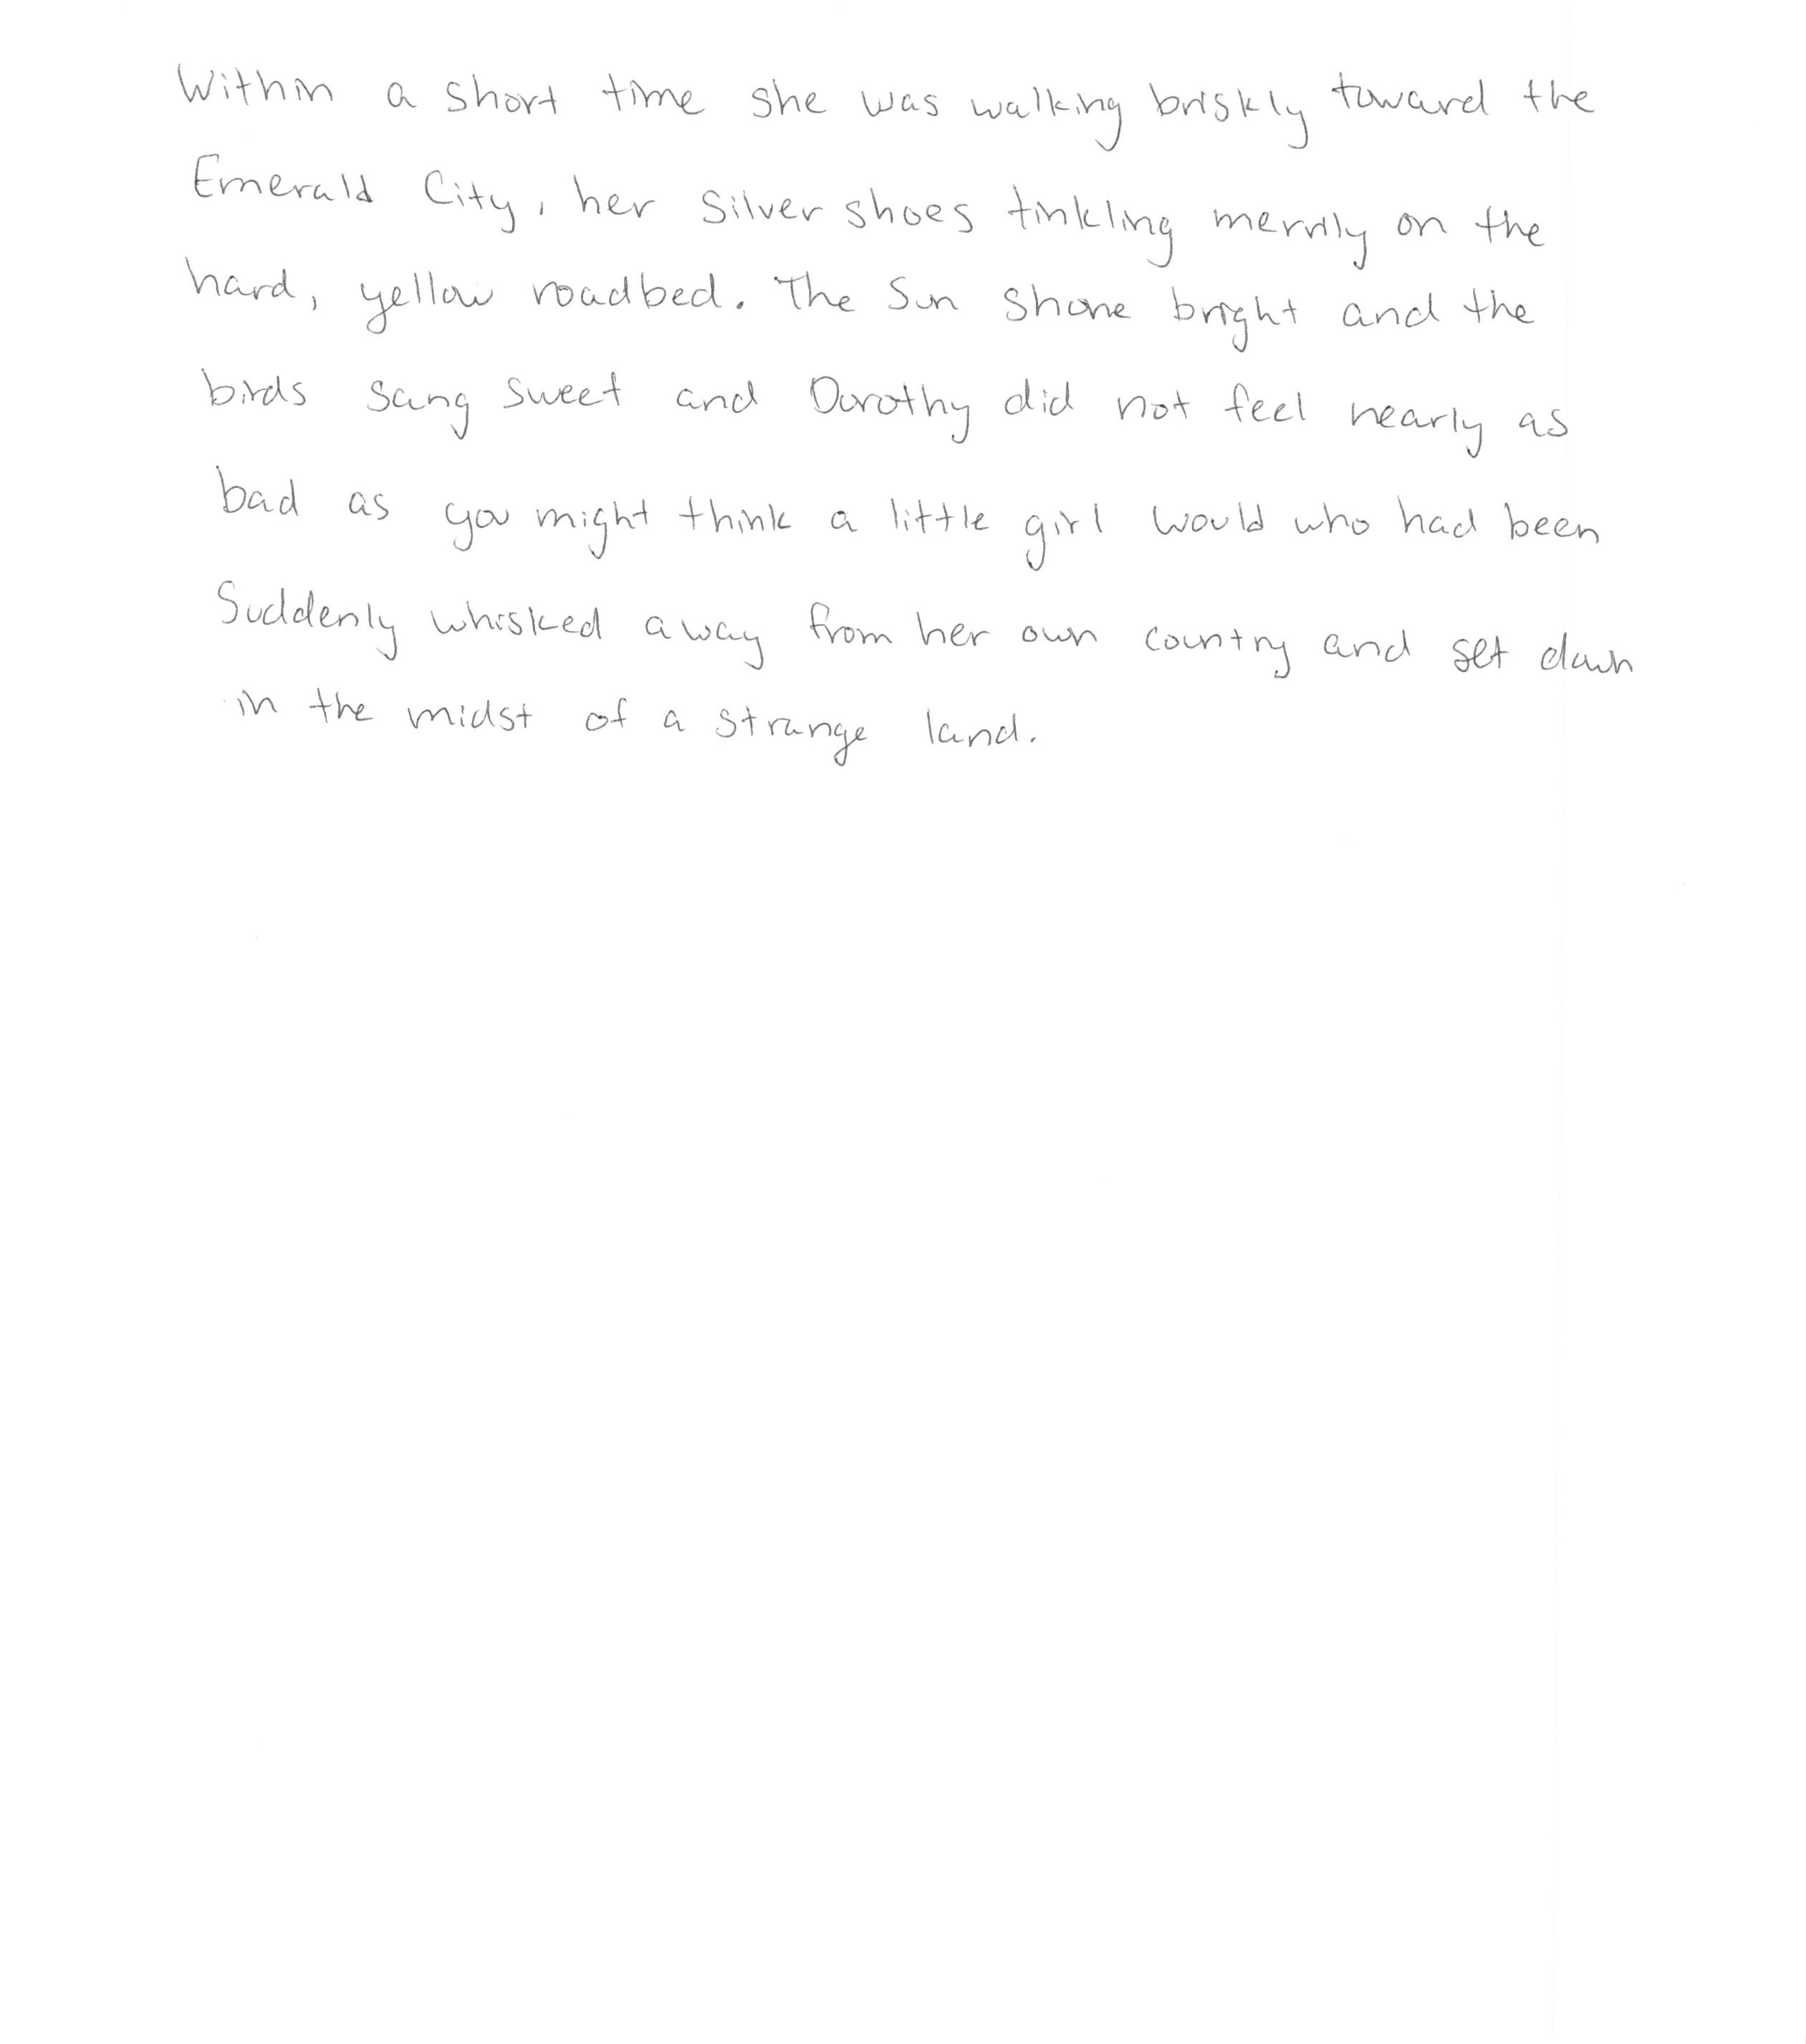 Within a short time she was walking briskly toward the
Emerald City, her silver shoes tinkling merrily on the
hard, yellow roadbed. The sun shone bright and the
birds sang sweet and Dorothy did not feel nearly as
bad as you might think a little girl would who had been
suddenly whisked away from her own country and set down
in the midst of a strange land.